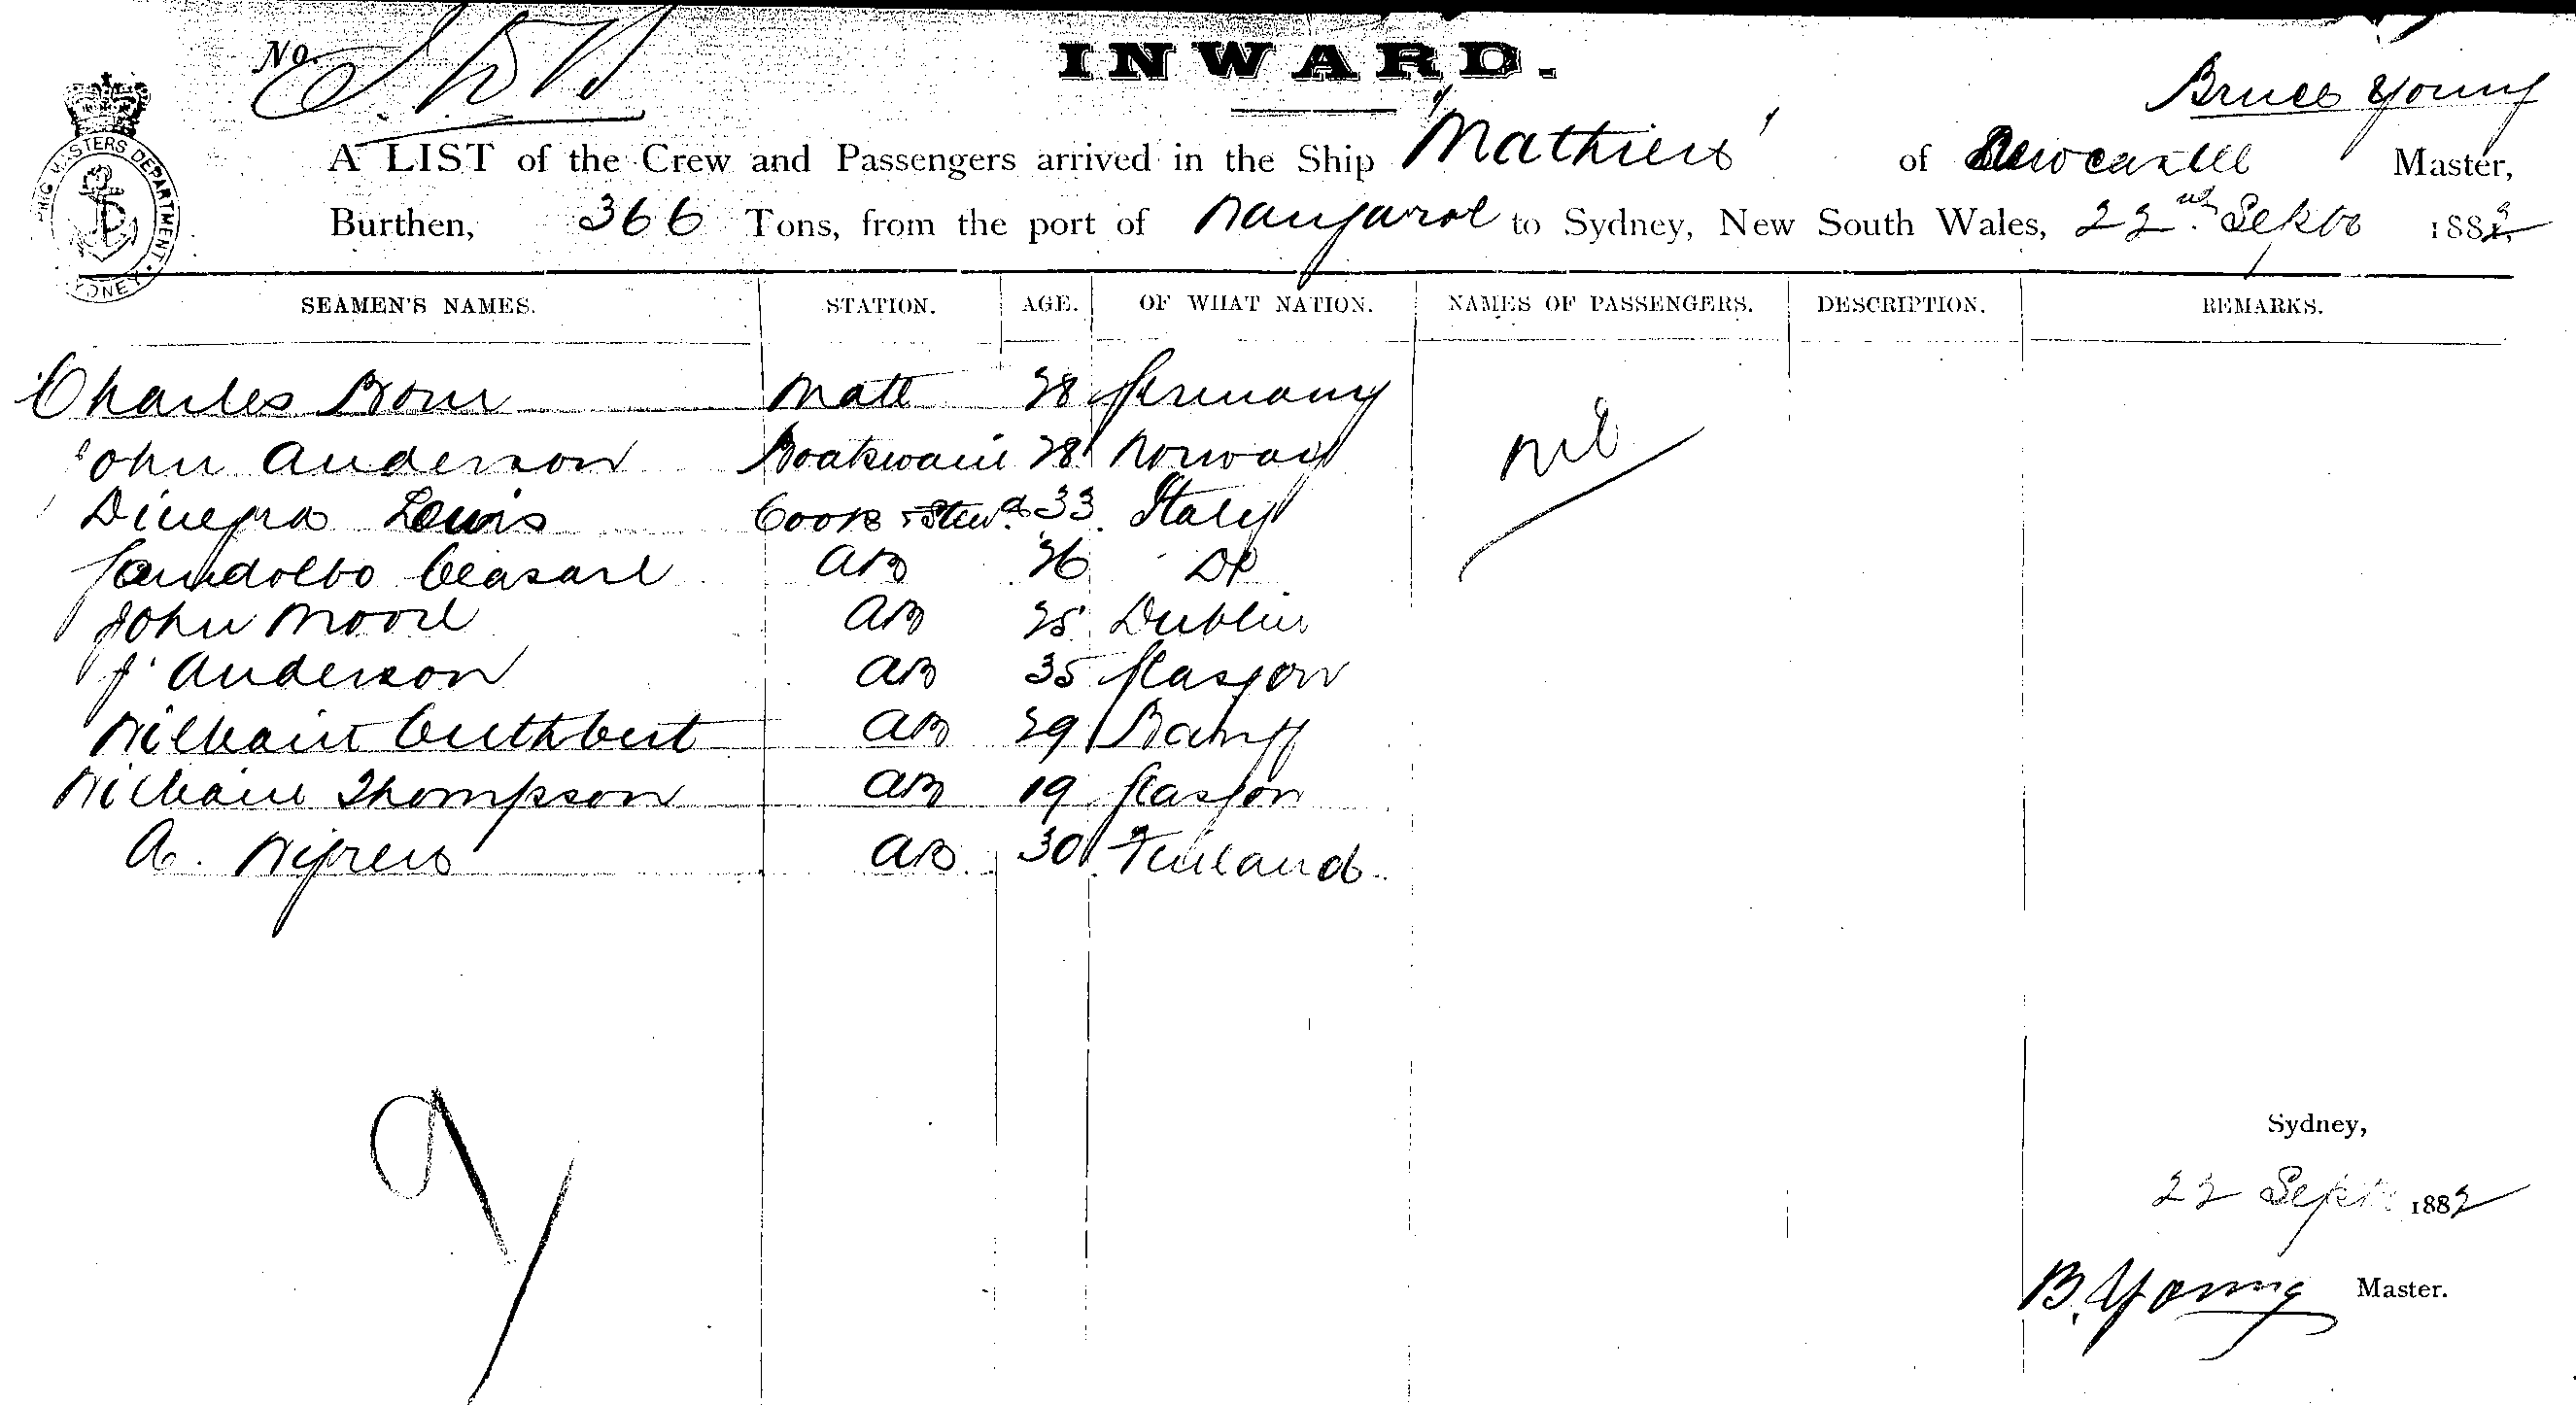 No.
INWARD.
Bruce Young
SHIPPING MASTERS DEPARTMENT. SYDNEY.
A LIST of the Crew and Passengers arrived in the Ship "Mathieu" of Newcastle Master,
Burthen, 366 Tons, from the port of to Sydney, New South Wales, 22nd Septr 1882
SEAMEN'S NAMES. STATION. AGE. OF WHAT NATION. NAMES OF PASSENGERS. DESCRIPTION. REMARKS.
Charles Mate 28 Germany
John Anderson Boatswain 28 Norway Nil
Dinegra Lewis Cook & Stewd 33 Italy
Ceasare AB 26 Do
John Moore AB 25 Dublin
J. Anderson AB 35 Glasgow
William Cuthbert AB 29 Banff
William Thompson AB 19 Glasgow
A. AB 30 Finland
9
Sydney,
22 Septr 1882
B. Young Master.